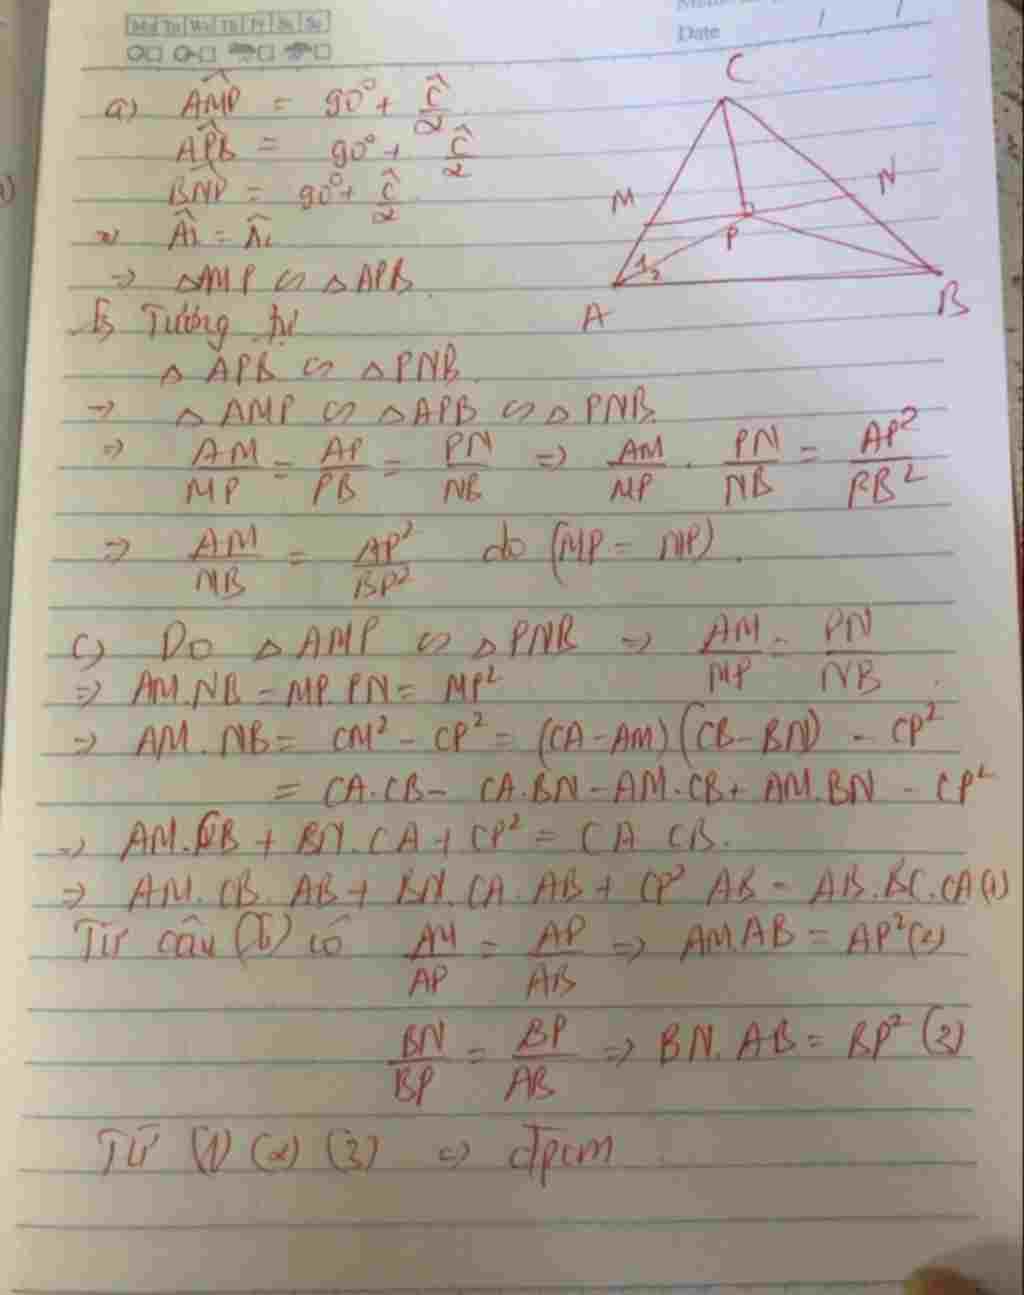 Mo Tu We Th Fr Sa Su
Date / /
a) AM̂P = 90° + Ĉ/2
AP̂B = 90° + Ĉ/2
BN̂P = 90° + Ĉ/2
Â1 = Â2
=> △AMP ∽ △APB
C
M
N
P
1 2
A
B
b, Tương tự
△ APB ∽ △PNB.
=> △AMP ∽ △APB ∽ △PNB.
=> AM/MP = AP/PB = PN/NB => AM/MP . PN/NB = AP²/PB²
=> AM/NB = AP²/BP² do (MP = NP).
c) Do △AMP ∽ △PNB => AM/MP = PN/NB.
=> AM.NB = MP.PN = MP²
=> AM.NB = CM² - CP² = (CA-AM)(CB-BN) - CP²
= CA.CB - CA.BN - AM.CB + AM.BN - CP²
=> AM.CB + BN.CA + CP² = CA CB.
=> AM.CB.AB + BN.CA.AB + CP² AB = AB.BC.CA (1)
Từ câu (b) có AM/AP = AP/AB => AM.AB = AP² (2)
BN/BP = BP/AB => BN.AB = BP² (3)
Từ (1) (2) (3) => đpcm